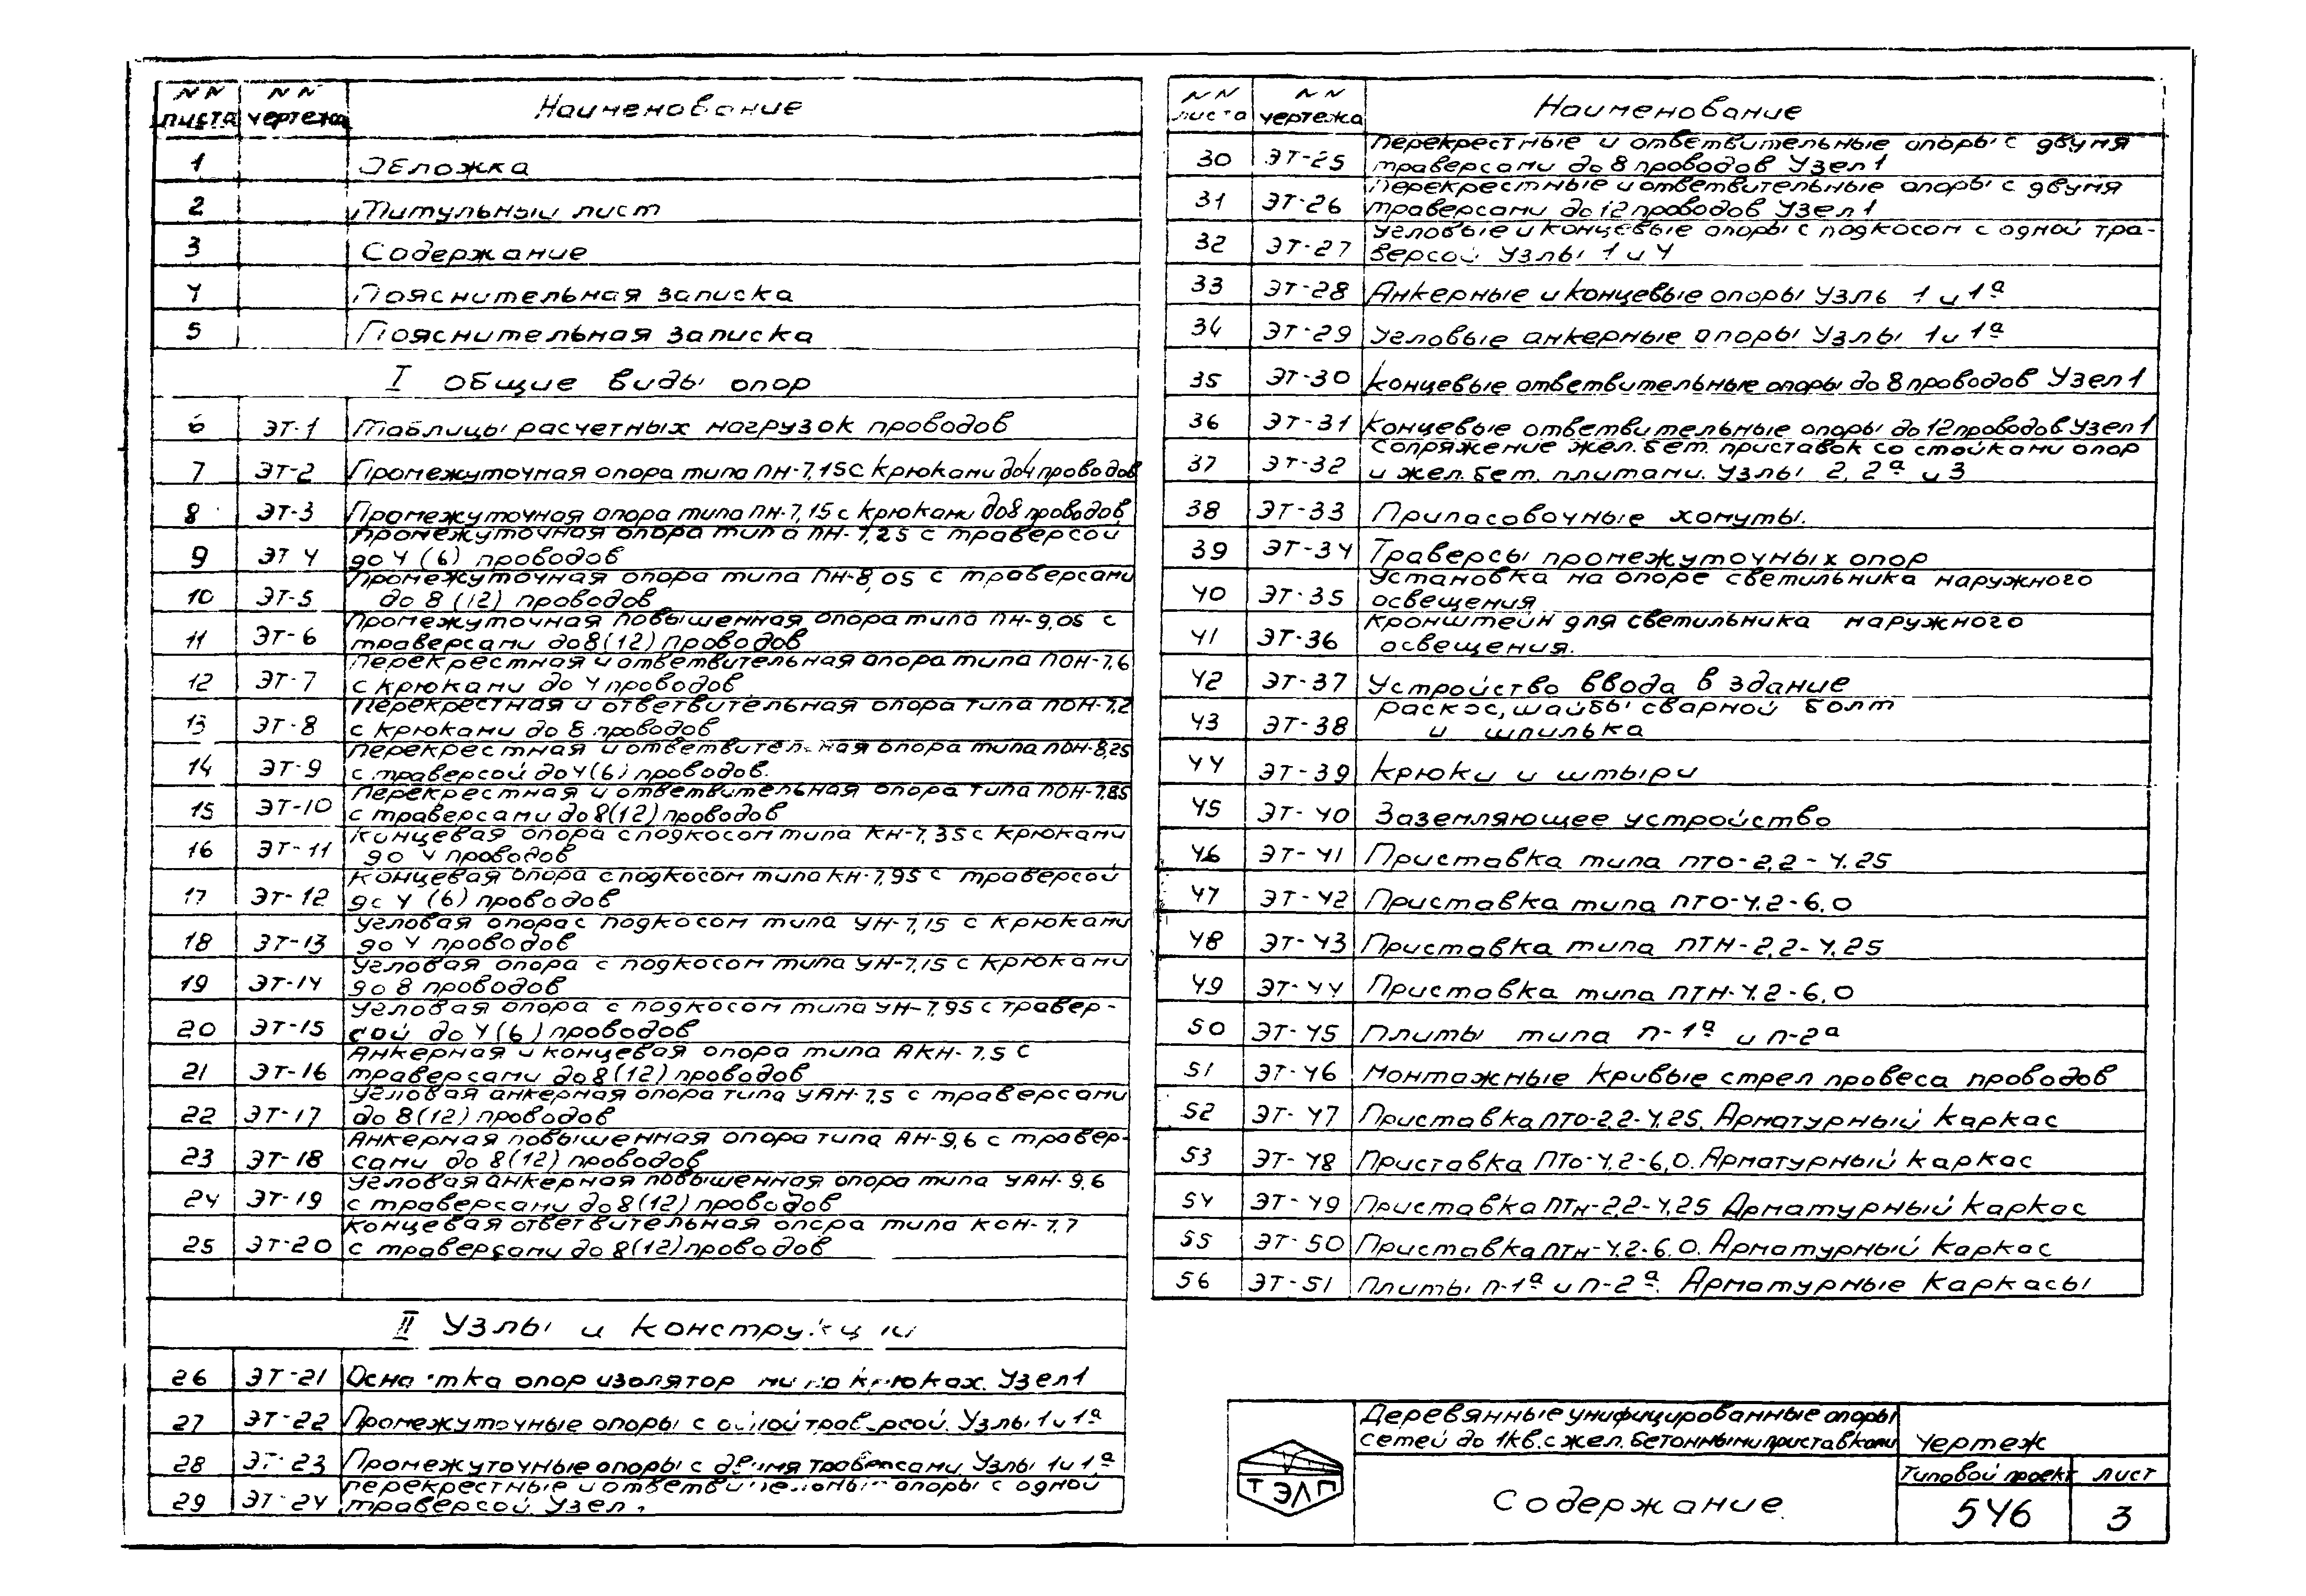 NN листа NN чертежа Наименование
1 Обложка
2 Титульный лист
3 Содержание
4 Пояснительная записка
5 Пояснительная записка
I Общие виды опор
6 ЭТ-1 Таблицы расчетных нагрузок проводов
7 ЭТ-2 Промежуточная опора типа ПН-7,15с крюками до 4 проводов
8 ЭТ-3 Промежуточная опора типа ПН-7,15 с крюками до 8 проводов
9 ЭТ 4 Промежуточная опора типа ПН-7,25 с траверсой
до 4 (6) проводов
10 ЭТ-5 Промежуточная опора типа ПН-8,05 с траверсами
до 8 (12) проводов
11 ЭТ-6 Промежуточная повышенная опора типа ПН-9,05 с
траверсами до 8(12) проводов
12 ЭТ-7 Перекрестная и ответвительная опора типа ПОН-7,6
с крюками до 4 проводов
13 ЭТ-8 Перекрестная и ответвительная опора типа ПОН-7,2
с крюками до 8 проводов
14 ЭТ-9 Перекрестная и ответвительная опора типа ПОН-8,25
с траверсой до 4(6) проводов.
15 ЭТ-10 Перекрестная и ответвительная опора типа ПОН-7,85
с траверсами до 8(12) проводов
16 ЭТ-11 Концевая опора с подкосом типа КН-7,35 с крюками
до 4 проводов
17 ЭТ-12 Концевая опора с подкосом типа КН-7,95 с траверсой
до 4 (6) проводов
18 ЭТ-13 Угловая опора с подкосом типа УН-7,15 с крюками
до 4 проводов
19 ЭТ-14 Угловая опора с подкосом типа УН-7,15 с крюками
до 8 проводов
20 ЭТ-15 Угловая опора с подкосом типа УН-7,95 с травер-
сой до 4 (6) проводов
21 ЭТ-16 Анкерная и концевая опора типа АКН-7,5 с
траверсами до 8(12) проводов
22 ЭТ-17 Угловая анкерная опора типа УАН-7,5 с траверсами
до 8(12) проводов
23 ЭТ-18 Анкерная повышенная опора типа АН-9,6 с травер-
сами до 8(12) проводов
24 ЭТ-19 Угловая анкерная повышенная опора типа УАН-9,6
с траверсами до 8(12) проводов
25 ЭТ-20 Концевая ответвительная опора типа КОН-7,7
с траверсами до 8(12) проводов
II Узлы и конструкции
26 ЭТ-21 Оснастка опор изоляторами на крюках. Узел 1
27 ЭТ-22 Промежуточные опоры с одной траверсой. Узлы 1 и 1а
28 ЭТ-23 Промежуточные опоры с двумя траверсами. Узлы 1 и 1а
29 ЭТ-24 Перекрестные и ответвительные опоры с одной
траверсой. Узел 1
NN листа NN чертежа Наименование
30 ЭТ-25 Перекрестные и ответвительные опоры с двумя
траверсами до 8 проводов Узел 1
31 ЭТ-26 Перекрестные и ответвительные опоры с двумя
траверсами до 12 проводов Узел 1
32 ЭТ-27 Угловые и концевые опоры с подкосом с одной тра-
версой Узлы 1 и 4
33 ЭТ-28 Анкерные и концевые опоры Узлы 1 и 1а
34 ЭТ-29 Угловые анкерные опоры Узлы 1 и 1а
35 ЭТ-30 Концевые ответвительные опоры до 8 проводов Узел 1
36 ЭТ-31 Концевые ответвительные опоры до 12 проводов Узел 1
37 ЭТ-32 Сопряжение жел. бет. приставок со стойками опор
и жел. бет. плитами. Узлы 2, 2а и 3
38 ЭТ-33 Припасовочные хомуты.
39 ЭТ-34 Траверсы промежуточных опор
40 ЭТ-35 Установка на опоре светильника наружного
освещения
41 ЭТ-36 Кронштейн для светильника наружного
освещения.
42 ЭТ-37 Устройство ввода в здание
43 ЭТ-38 Раскос, шайбы сварной болт
и шпилька
44 ЭТ-39 Крюки и штыри
45 ЭТ-40 Заземляющее устройство
46 ЭТ-41 Приставка типа ПТО-2,2-4,25
47 ЭТ-42 Приставка типа ПТО-4,2-6,0
48 ЭТ-43 Приставка типа ПТН-2,2-4,25
49 ЭТ-44 Приставка типа ПТН-4,2-6,0
50 ЭТ-45 Плиты типа П-1а и П-2а
51 ЭТ-46 Монтажные кривые стрел провеса проводов
52 ЭТ-47 Приставка ПТО-2,2-4,25. Арматурный каркас
53 ЭТ-48 Приставка ПТО-4,2-6,0. Арматурный каркас
54 ЭТ-49 Приставка ПТН-2,2-4,25 Арматурный каркас
55 ЭТ-50 Приставка ПТН-4,2-6,0. Арматурный каркас
56 ЭТ-51 Плиты П-1а и П-2а. Арматурные каркасы
ТЭЛП
Деревянные унифицированные опоры
сетей до 1кв. с жел. бетонными приставками
Чертеж
Содержание
Типовой проект лист
546 3